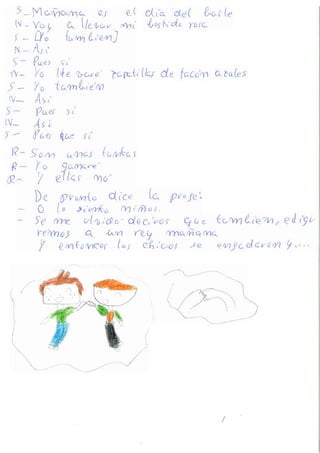 S-Mañana es el día del baile
N-Voy a llevar mi bestido rosa
S-[Yo también]
N-Así
S-Pues sí
N-Yo llevaré zapatillas de tacón azules
S-Yo también
N-Así
S-Pues sí
N-Así
S-Pues que sí
R-Son unas tontas
R-Yo ganaré
R-Y ellas no
De pronto dice la profe:
-O lo siento niños.
-Se me olvidó deciros que también, edigi
remos a un rey mañana
Y entonces los chicos se enfadaron y....